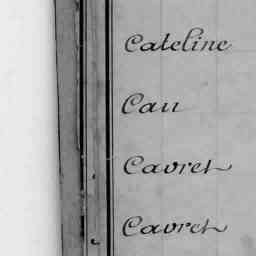 Cateline
Cau
Cavret
Cavret